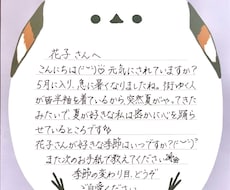 花子さんへ
こんにちは(˙꒳˙) 元気にされていますか?
5月に入り、急に暑くなりましたね。街ゆく人
が皆半袖を着ているから、突然夏がやってきた
みたいで、夏が好きな私は密かに心を踊らせ
ているところです
花子さんが好きな季節はいつですか?(˙꒳˙)
また次のお手紙で教えてください
季節の変わり目、どうぞ
ご自愛ください